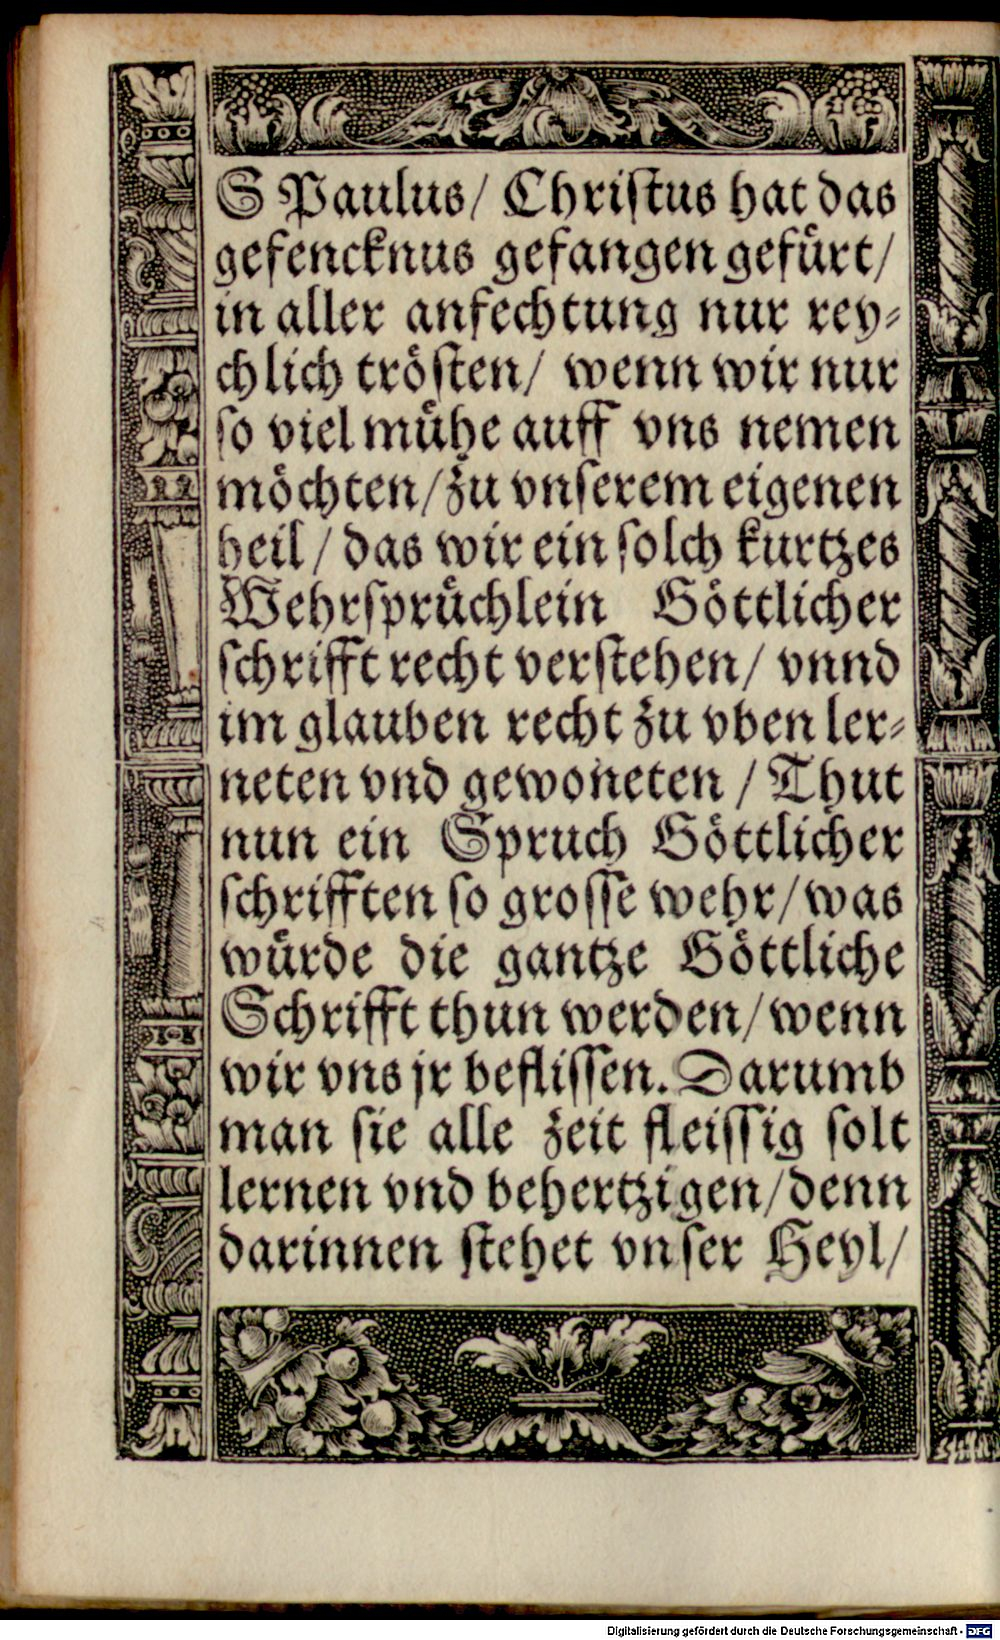 S Paulus/ Chriſtus hat das
gefencknus gefangen gefürt/
in aller anfechtung nur rey⸗
chlich tröſten/ wenn wir nur
ſo viel mühe auff vns nemen
möchten/ zu vnſerem eigenen
heil/ das wir ein ſolch kurtzes
Wehrſprüchlein Göttlicher
ſchrifft recht verſtehen/ vnnd
im glauben recht zu vben ler⸗
neten vnd gewoneten/ Thut
nun ein Spruch Göttlicher
ſchrifften ſo groſſe wehr/ was
würde die gantze Göttliche
Schrifft thun werden/ wenn
wir vns jr befliſſen. Darumb
man ſie alle zeit fleiſſig ſolt
lernen vnd behertzigen/ denn
darinnen ſtehet vnſer Heyl/
Digitalisierung gefördert durch die Deutsche Forschungsgemeinschaft - DFG